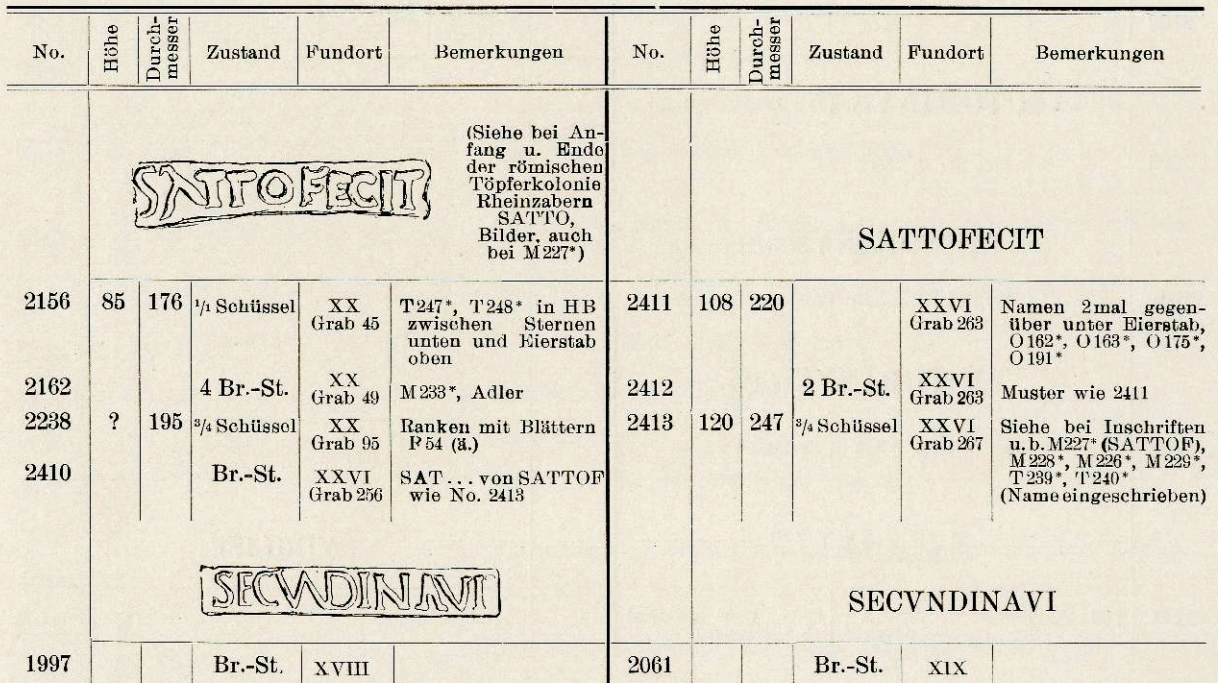 No. Höhe Durch-messer Zustand Fundort Bemerkungen
SATTOFECIT
(Siehe bei An-
fang u. Ende
der römischen
Töpferkolonie
Rheinzabern
SATTO,
Bilder, auch
bei M227*)
2156 85 176 1/1 Schüssel XX T247*, T248* in HB
Grab 45 zwischen Sternen
unten und Eierstab
oben
2162 4 Br.-St. XX
Grab 49 M233*, Adler
2238 ? 195 3/4 Schüssel XX Ranken mit Blättern
Grab 95 P54 (ä.)
2410 Br.-St. XXVI SAT... von SATTOF
Grab 256 wie No. 2413
SECVNDINAVI
1997 Br.-St. XVIII
No. Höhe Durch-messer Zustand Fundort Bemerkungen
SATTOFECIT
2411 108 220 XXVI Namen 2mal gegen-
Grab 263 über unter Eierstab,
O162*, O163*, O175*,
O191*
2412 2 Br.-St. XXVI
Grab 263 Muster wie 2411
2413 120 247 3/4 Schüssel XXVI Siehe bei Inschriften
Grab 267 u. b. M227* (SATTOF),
M228*, M226*, M229*,
T239*, T240*
(Name eingeschrieben)
SECVNDINAVI
2061 Br.-St. XIX